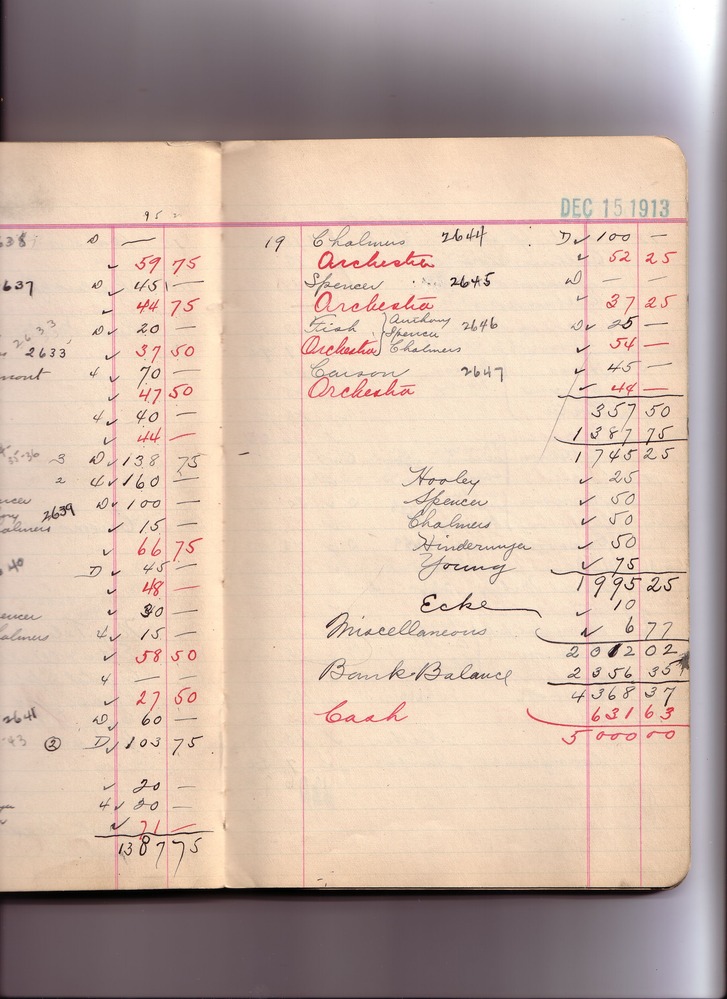 95
D —
✓ 59 75
2637 D ✓ 45 —
✓ 44 75
2633
D ✓ 20 —
2633 ✓ 37 50
4 ✓ 70 —
✓ 47 50
4 ✓ 40 —
✓ 44 —
35-36 3 D ✓ 138 75
2 4 ✓ 160 —
2639 D ✓ 100 —
✓ 15 —
✓ 66 75
40 D ✓ 45 —
✓ 48 —
✓ 30 —
4 ✓ 15 —
✓ 58 50
4 — —
✓ 27 50
2641 D ✓ 60 —
-43 ② D ✓ 103 75
✓ 20 —
4 ✓ 20 —
✓ 71 —
1387 75
DEC 15 1913
19 Chalmers 2644 D ✓ 100 —
Orchestra ✓ 52 25
Spencer 2645 D — —
Orchestra ✓ 37 25
Fish } Anthony Spencer 2646 D ✓ 25 —
Orchestra } Chalmers ✓ 54 —
Carson 2647 ✓ 45 —
Orchestra ✓ 44 —
357 50
1387 75
1745 25
Hooley ✓ 25
Spencer ✓ 50
Chalmers ✓ 50
Hindermyer ✓ 50
Young ✓ 75
1995 25
Ecke ✓ 10
Miscellaneous ✓ 6 77
2012 02
Bank Balance 2356 35
4368 37
Cash 631 63
5000 00